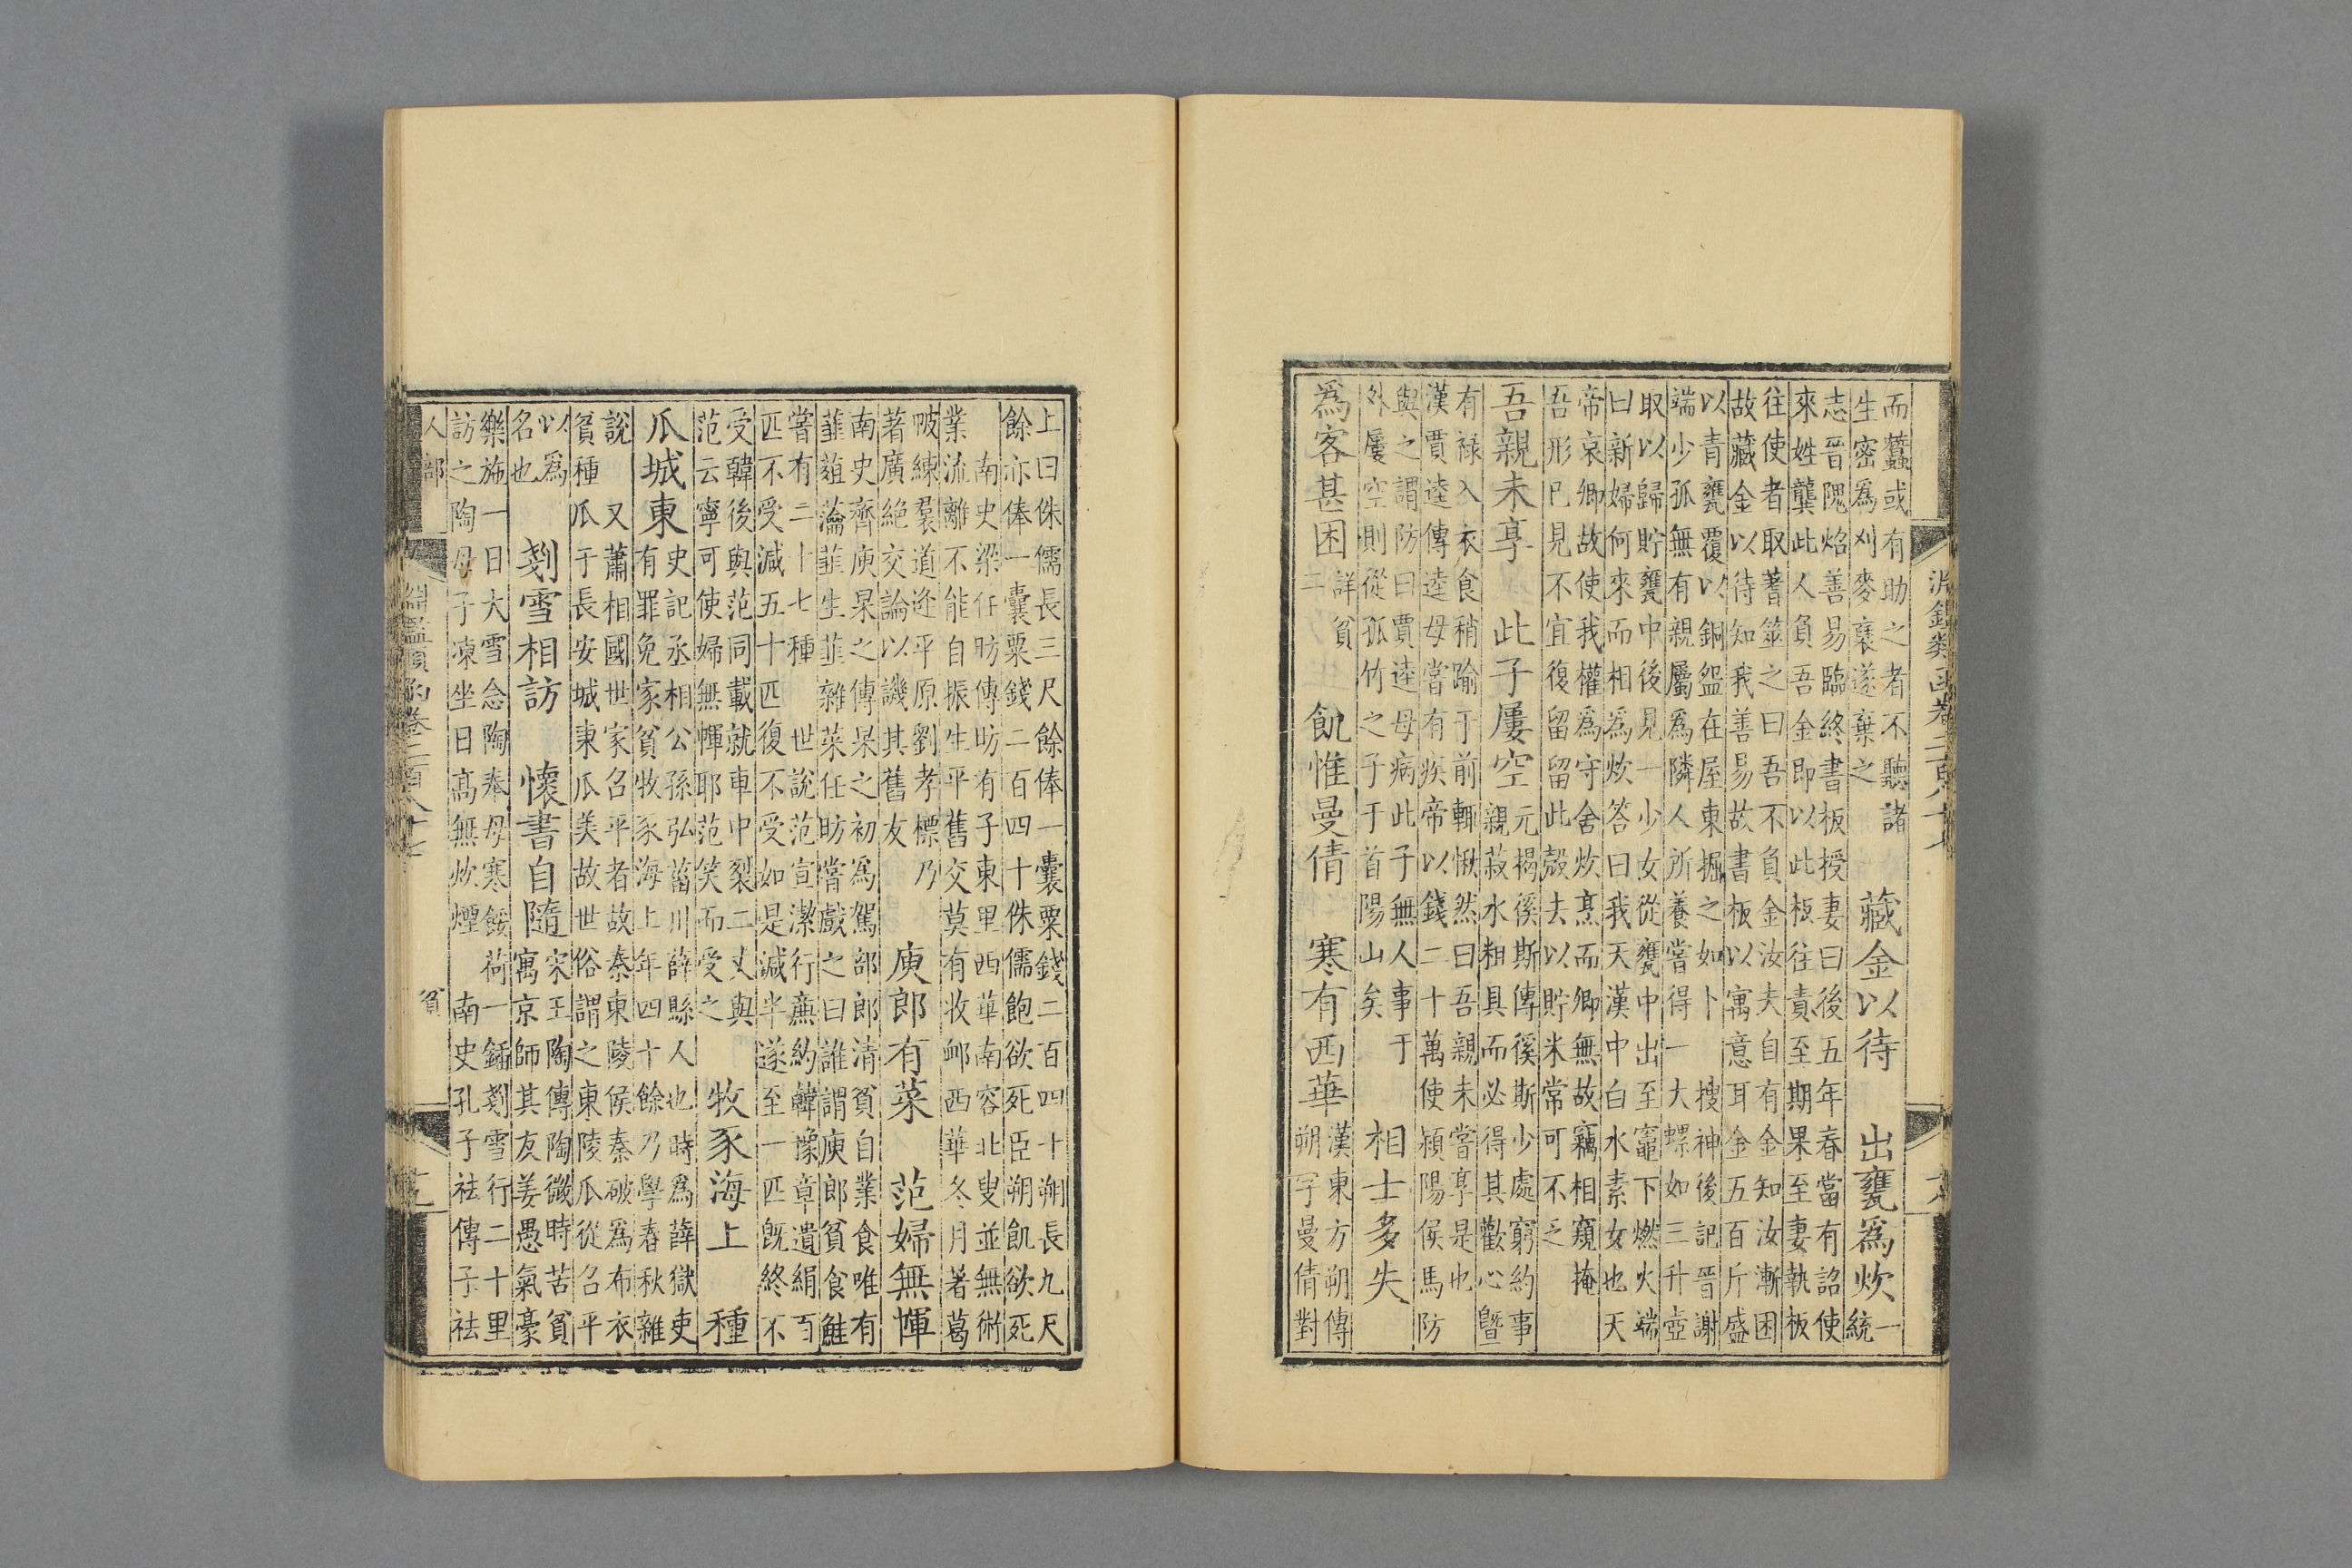 而蠶或有助之者不聽諸
生密為刈麥裒遂棄之
藏金以待　出甕爲炊
一統
志晉隗炤善易臨終書板授妻曰後五年春當有詔使
來姓龔此人負吾金即以此板往責至期果至妻執板
往使者取蓍筮之曰吾不負金汝夫自有金知汝漸困
故藏金以待知我善易故書板以寓意耳金五百斤盛
以青甕覆以銅盤在屋東掘之如卜　搜神後記晉謝
端少孤無有親屬爲隣人所養嘗得一大螺如三升壺
取以歸貯甕中後見一少女從甕中出至竈下燃火端
曰新婦何來而相爲炊答曰我天漢中白水素女也天
帝哀卿故使我權爲守舍炊烹而卿無故竊相窺掩
吾形已見不宜復留留此殼去以貯米常可不乏
吾親未享　此子屢空
元揭傒斯傳傒斯少處窮約事
親菽水粗具而必得其歡心曁
有祿入衣食稍踰于前輒愀然曰吾親未嘗享是也
漢賈逵傳逵母嘗有疾帝以錢二十萬使潁陽侯馬防
與之謂防曰賈逵母病此子無人事于
外屢空則從孤竹之子于首陽山矣
相士多失
爲客甚困
詳貧
二
飢惟曼倩　寒有西華
漢東方朔傳
朔字曼倩對
上曰侏儒長三尺餘俸一囊粟錢二百四十朔長九尺
餘亦俸一囊粟錢二百四十侏儒飽欲死臣朔飢欲死
南史梁任昉傳昉有子東里西華南容北叟並無術
業流離不能自振生平舊交莫有收邺西華冬月著葛
帔練裠道逢平原劉孝標乃
著廣絶交論以譏其舊友
庾郎有菜　范婦無惲
南史齊庾杲之傳杲之初爲駕部郎清貧自業食唯有
韮葅瀹韮生韮雜菜任昉嘗戲之曰誰謂庾郎貧食鮭
嘗有二十七種　世說范宣潔行廉約韓豫章遺絹百
匹不受減五十匹復不受如是減半遂至一匹既終不
受韓後與范同載就車中裂二丈與
范云寧可使婦無惲耶范笑而受之
牧豕海上　種
瓜城東
史記丞相公孫弘菑川薛縣人也時爲薛獄吏
有罪免家貧牧豕海上年四十餘乃學春秋雜
說　又蕭相國世家召平者故秦東陵侯秦破爲布衣
貧種瓜于長安城東瓜美故世俗謂之東陵瓜從召平
以爲
名也
剗雪相訪　懷書自隨
宋王陶傳陶微時苦貧
寓京師其友姜愚氣豪
樂施一日大雪念陶奉母寒餒荷一鍤剗雪行二十里
訪之陶母子凍坐日高無炊煙　南史孔子袪傳子袪
人部
貧